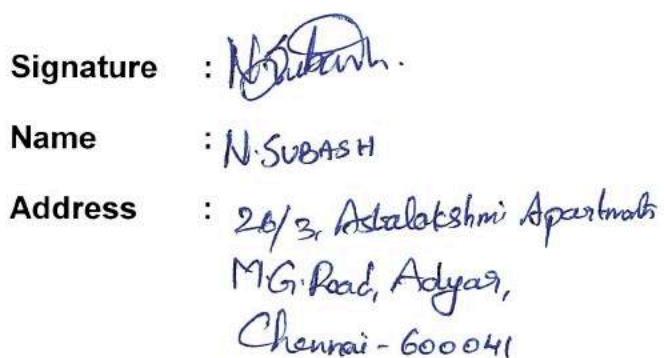 Signature : N. Subash.
Name : N. SUBASH
Address : 26/3, Astalakshmi Apartments
M.G. Road, Adyar,
Chennai - 600041